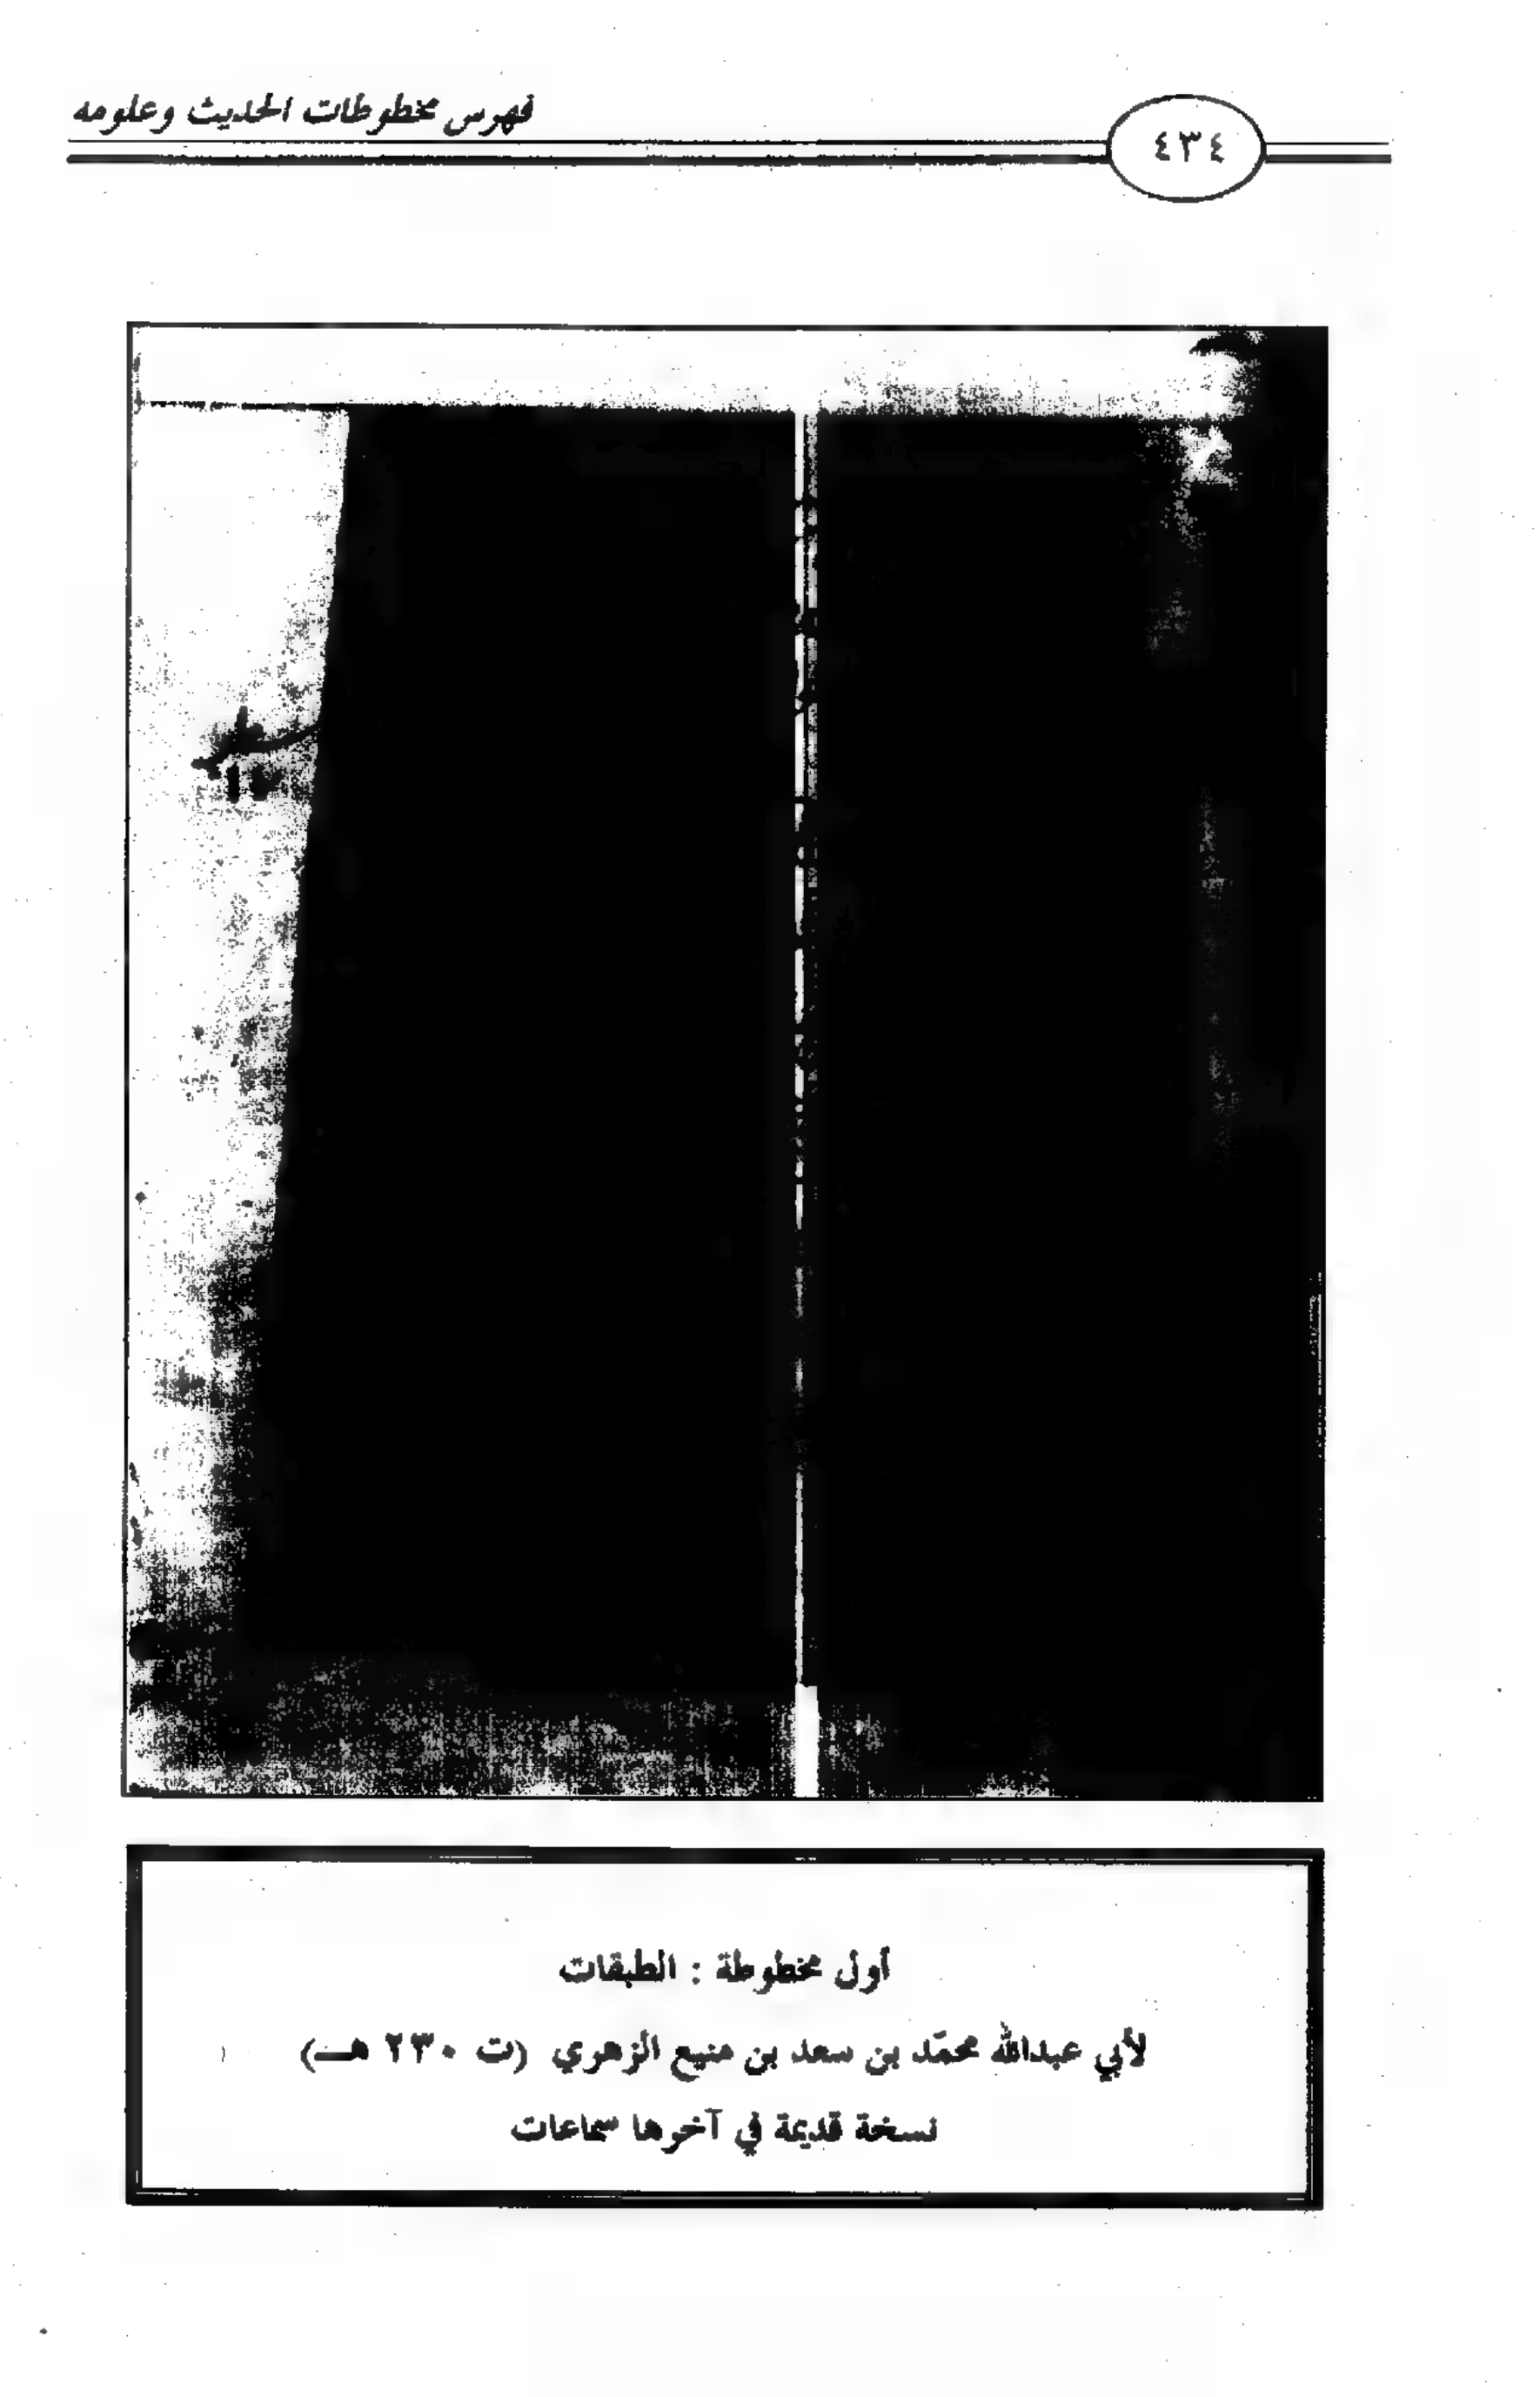 فهرس مخطوطات الحديث وعلومه
٤٣٤
أول مخطوطة : الطبقات
لأبي عبدالله محمّد بن سعد بن منيع الزهري (ت ٢٣٠ هـ)
نسخة قديمة في آخرها سماعات